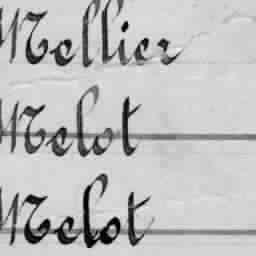 Mellier
Melot
Melot